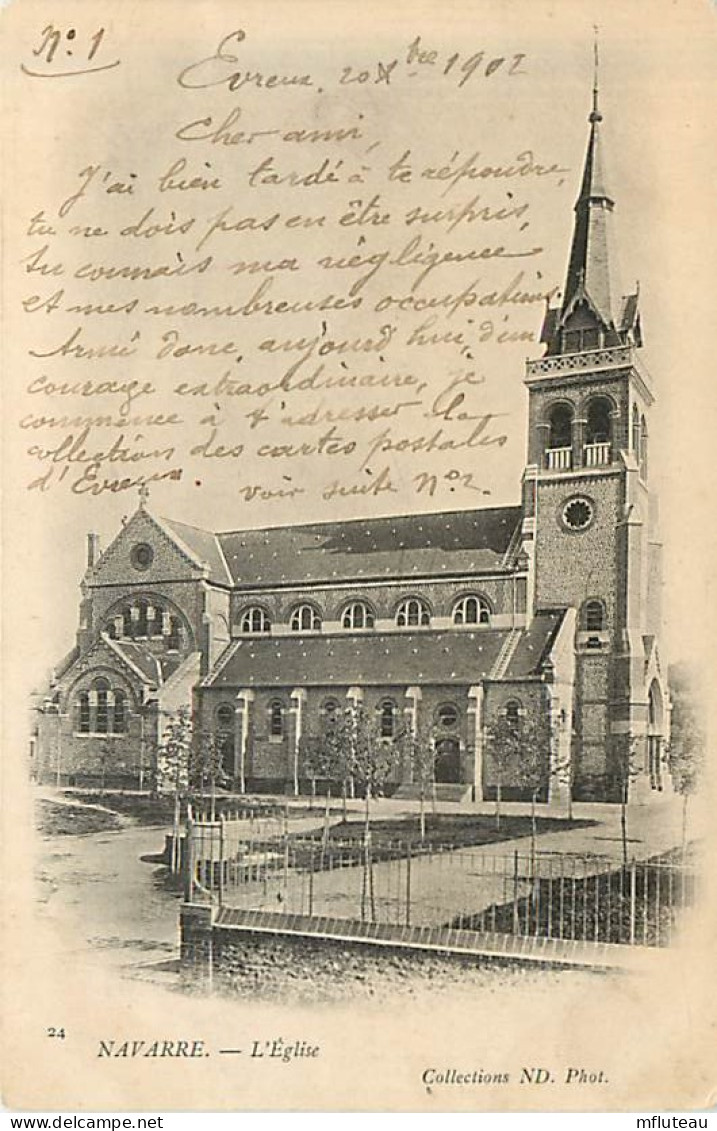 N.o 1
Evreux, 20 Xbre 1902
Cher ami,
J'ai bien tardé à te répondre,
tu ne dois pas en être surpris,
tu connais ma négligence
et mes nombreuses occupations
Armé donc, aujourd'hui, d'un
courage extraordinaire, je
commence à t'adresser la
collection des cartes postales
d'Evreux.
voir suite No 2.
24
NAVARRE. — L'Église
Collections ND. Phot.
mfluteau